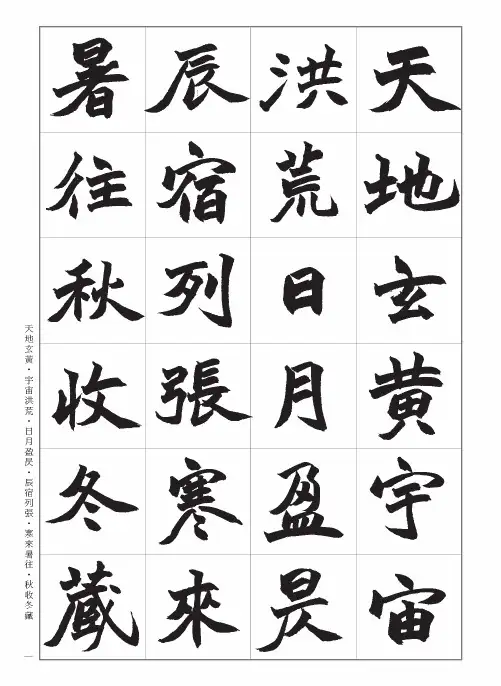 天地玄黄宇宙
洪荒日月盈昃
辰宿列張寒來
暑往秋收冬蔵
天地玄黄・宇宙洪荒・日月盈昃・辰宿列張・寒來暑往・秋收冬藏
一